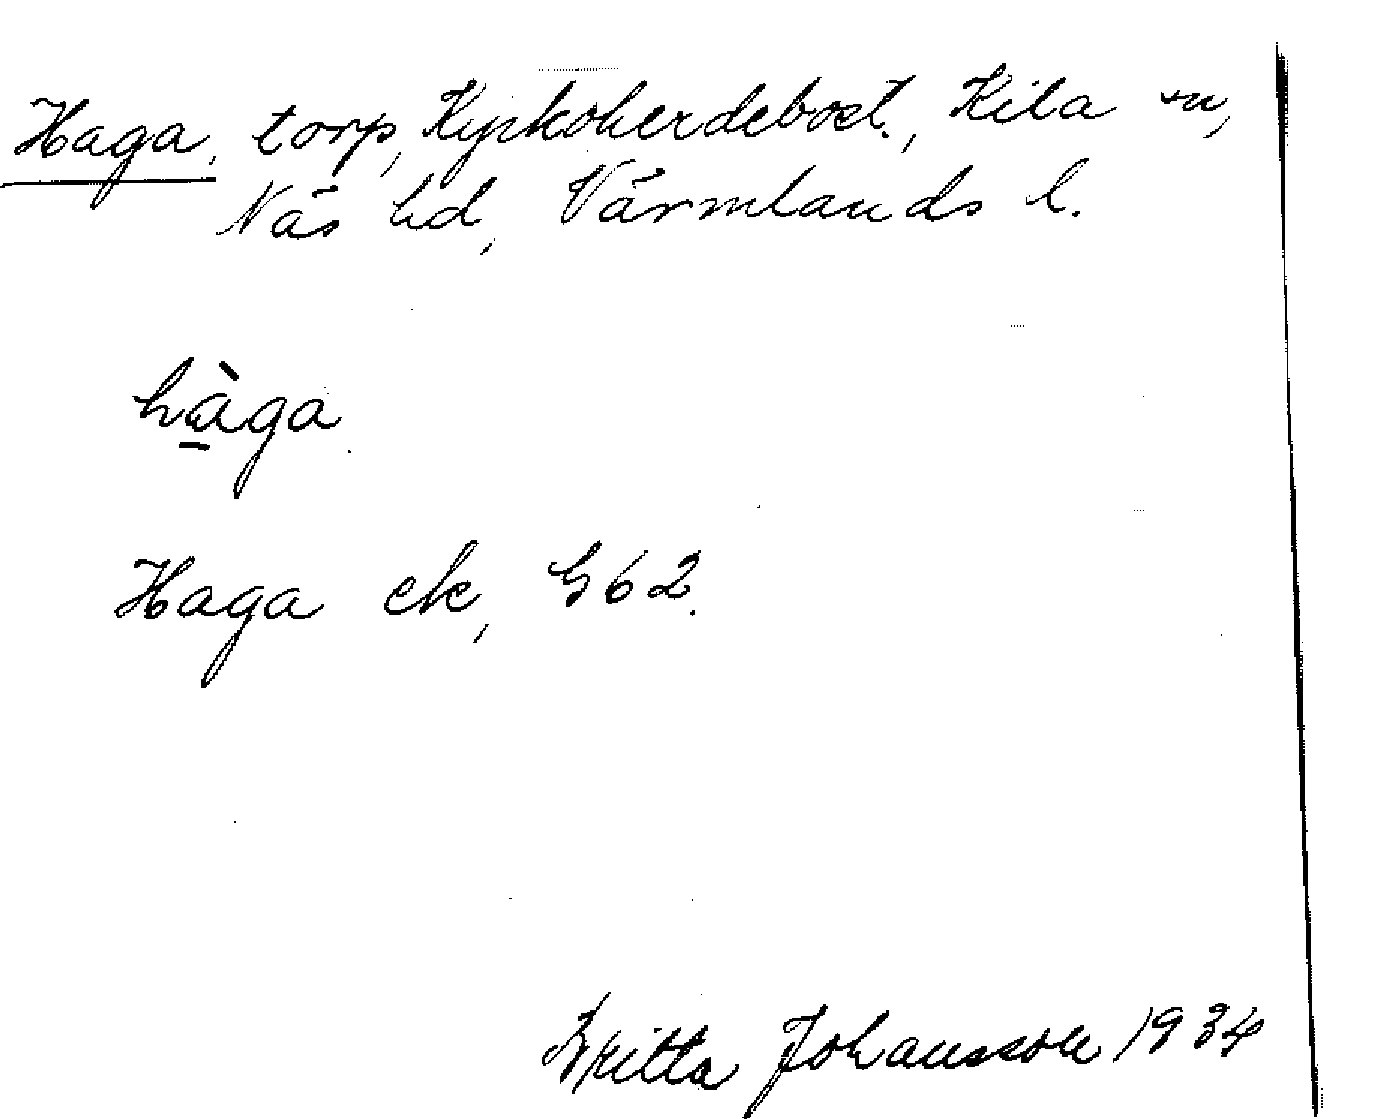 Haga, torp, Kyrkoherdebost., Kila sn,
Näs hd, Värmlands l.
hàga
Haga ek, G62.
Britta Johansson 1934